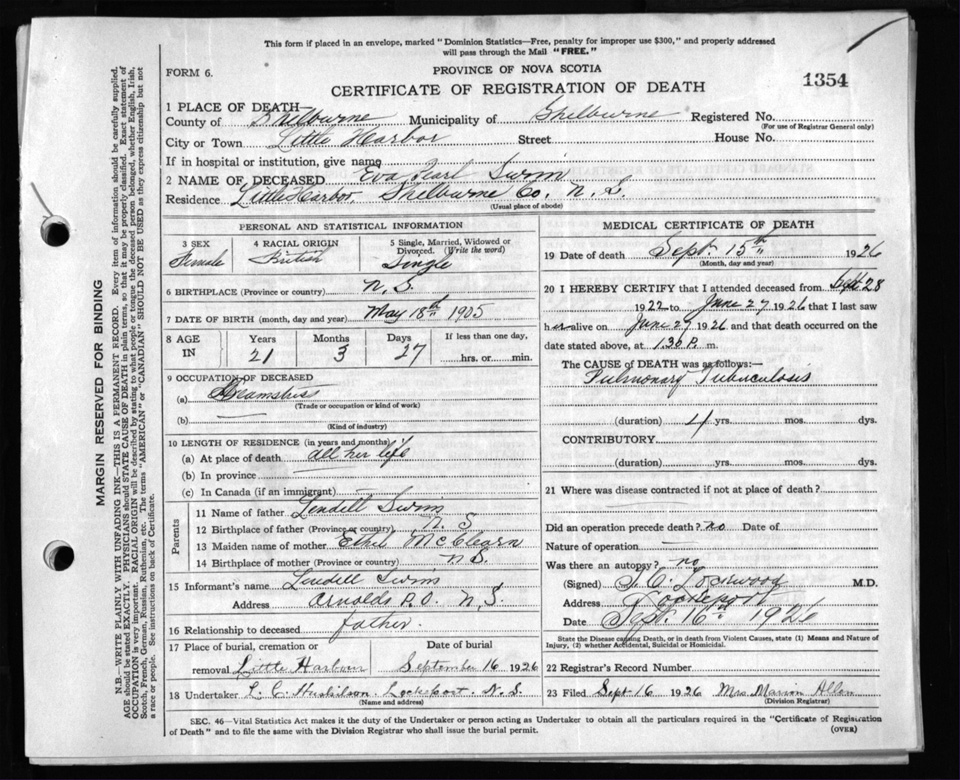 This form if placed in an envelope, marked "Dominion Statistics—Free, penalty for improper use $300," and properly addressed
will pass through the Mail "FREE."
FORM 6.
PROVINCE OF NOVA SCOTIA
CERTIFICATE OF REGISTRATION OF DEATH
1354
1 PLACE OF DEATH—
County of Shelburne Municipality of Shelburne Registered No.
(For use of Registrar General only)
City or Town Little Harbor Street House No.
If in hospital or institution, give name
2 NAME OF DECEASED Eva Pearl Swim
Residence Little Harbor, Shelburne Co, N.S.
(Usual place of abode)
PERSONAL AND STATISTICAL INFORMATION
3 SEX Female
4 RACIAL ORIGIN British
5 Single, Married, Widowed or Divorced. (Write the word) Single
6 BIRTHPLACE (Province or country) N.S.
7 DATE OF BIRTH (month, day and year) May 18th 1905
8 AGE IN Years 21 Months 3 Days 27 If less than one day, hrs. or min.
9 OCCUPATION OF DECEASED
(a) Seamstress
(Trade or occupation or kind of work)
(b) —
(Kind of industry)
10 LENGTH OF RESIDENCE (in years and months)
(a) At place of death all her life
(b) In province
(c) In Canada (if an immigrant)
Parents
11 Name of father Lendell Swim
12 Birthplace of father (Province or country) N S
13 Maiden name of mother Ethel McClearn
14 Birthplace of mother (Province or country) N S.
15 Informant's name Lendell Swim
Address Arnolds P.O. N.S.
16 Relationship to deceased father.
17 Place of burial, cremation or Date of burial
removal Little Harbor September 16 1926
18 Undertaker L. C. Lockeport. N.S.
(Name and address)
MEDICAL CERTIFICATE OF DEATH
19 Date of death Sept. 15th 1926
(Month, day and year)
20 I HEREBY CERTIFY that I attended deceased from Sept 28
1922 to June 27 1926 that I last saw
her alive on June 27 1926 and that death occurred on the
date stated above, at 1.30 P. m.
The CAUSE OF DEATH was as follows:—
Pulmonary Tuberculosis
(duration) 4 yrs. mos. dys.
CONTRIBUTORY
(duration) yrs. mos. dys.
21 Where was disease contracted if not at place of death?
Did an operation precede death? no Date of
Nature of operation —
Was there an autopsy? no
(Signed) Lockwood M.D.
Address Lockeport
Date Sept. 16th 1926
State the Disease causing Death, or in death from Violent Causes, state (1) Means and Nature of
Injury, (2) whether Accidental, Suicidal or Homicidal.
22 Registrar's Record Number
23 Filed Sept 16 1926 Mrs. Marion Allen
(Division Registrar)
SEC. 46—Vital Statistics Act makes it the duty of the Undertaker or person acting as Undertaker to obtain all the particulars required in the "Certificate of Registration
of Death" and to file the same with the Division Registrar who shall issue the burial permit.
(OVER)
MARGIN RESERVED FOR BINDING
N.B.—WRITE PLAINLY WITH UNFADING INK—THIS IS A PERMANENT RECORD. Every item of information should be carefully supplied.
AGE should be stated EXACTLY. PHYSICIANS should STATE CAUSE OF DEATH in plain terms, so that it may be properly classified. Exact statement of
OCCUPATION is very important. RACIAL ORIGIN will be described by stating to what people or tongue the deceased person belonged, whether English, Irish,
Scotch, French, German, Russian, Ruthenian, etc. The terms "AMERICAN" or "CANADIAN" SHOULD NOT BE USED as they express citizenship but not
a race or people. See instructions on back of Certificate.